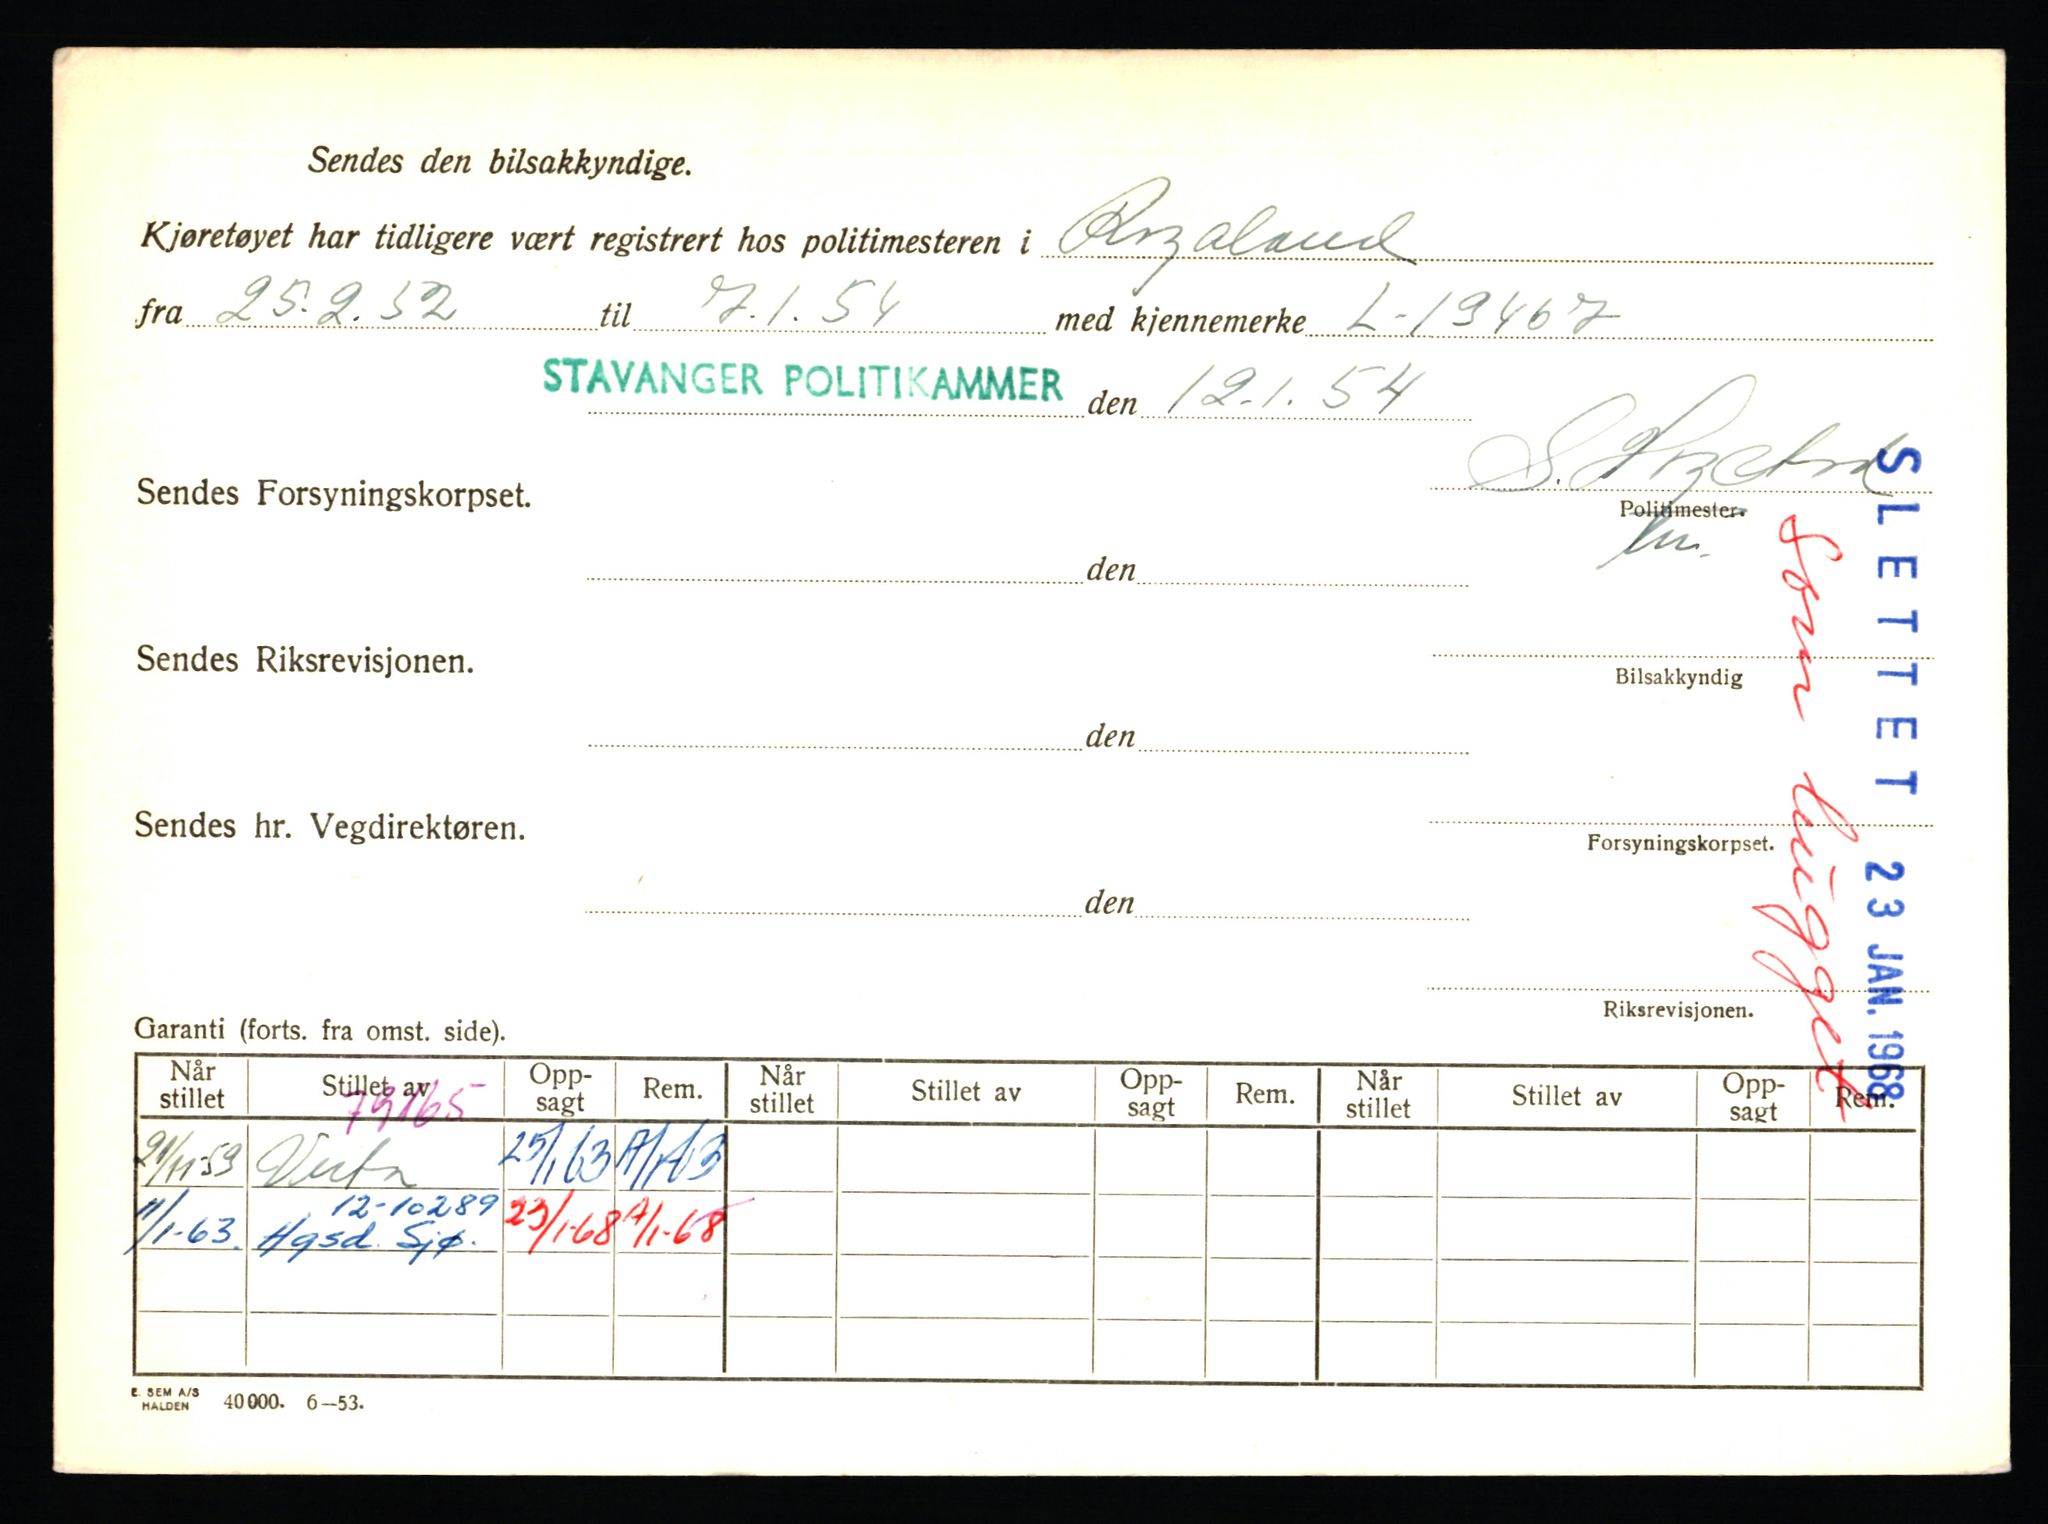 Sendes den bilsakkyndige.
Kjøretøyet har tidligere vært registrert hos politimesteren i Rogaland
fra 25.2.52 til 7.1.54 med kjennemerke L-19467
STAVANGER POLITIKAMMER den 12.1.54
Sendes Forsyningskorpset.
Politimester.
den
Sendes Riksrevisjonen.
Bilsakkyndig
den
Sendes hr. Vegdirektøren.
Forsyningskorpset.
den
Riksrevisjonen.
SLETTET 23 JAN. 1968
Som hugget
Garanti (forts. fra omst. side).
Når stillet Stillet av Opp-sagt Rem. Når stillet Stillet av Opp-sagt Rem. Når stillet Stillet av Opp-sagt Rem.
79165
21/11-59 Vesta 25/1 63 A/1-63
12-10289
11/1-63. Hgsd. Sjø. 23/1-68 A/1-68
E. SEM A/S
HALDEN 40000. 6—53.